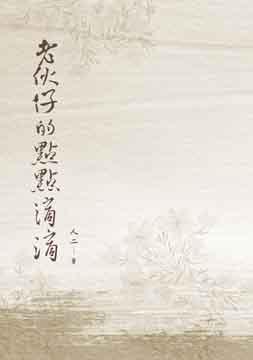 老伙仔的點點滴滴
人二一著